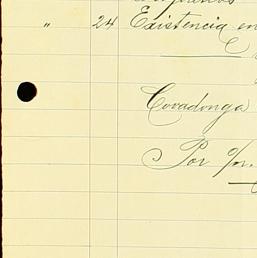 " 24 Existencia en
Covadonga
Por o/m.